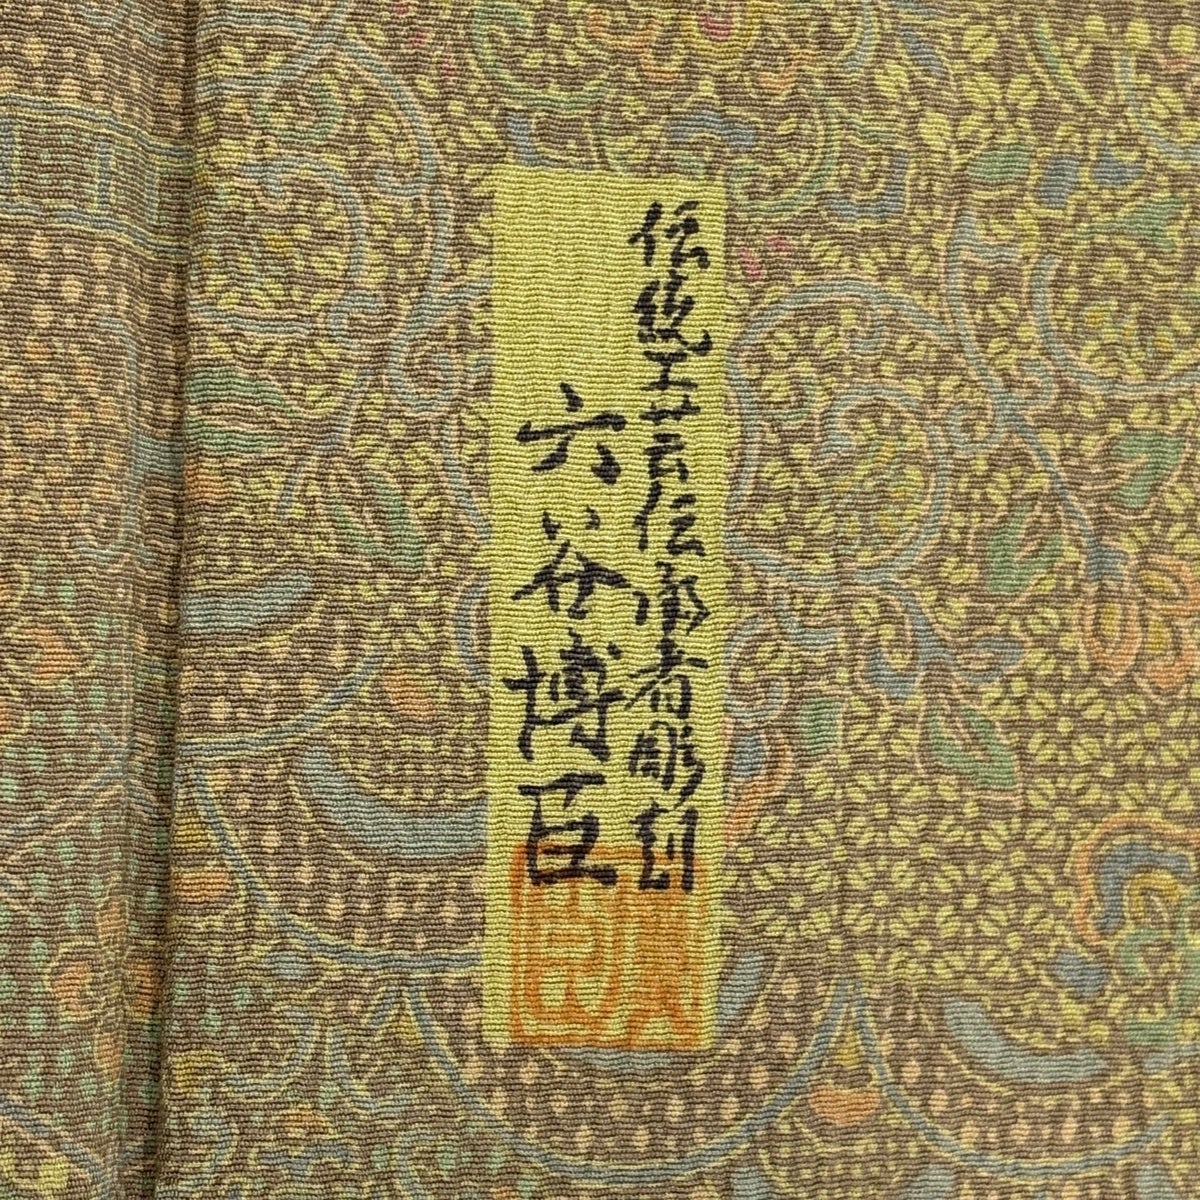 伝統工芸伝承者彫刻
六谷博臣